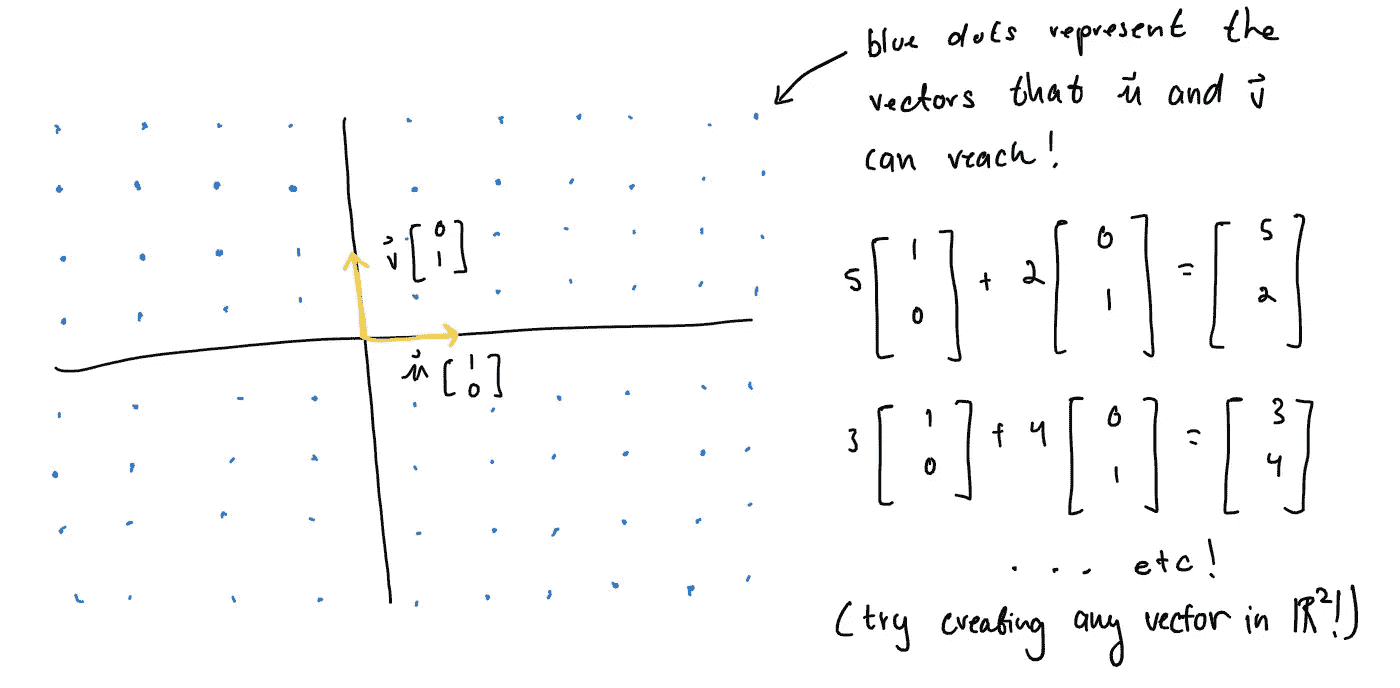 blue dots represent the
vectors that u⃗ and v⃗
can reach!
v⃗ [0 1]
u⃗ [1 0]
5 [1 0] + 2 [0 1] = [5 2]
3 [1 0] + 4 [0 1] = [3 4]
. . . etc!
(try creating any vector in ℝ²!)